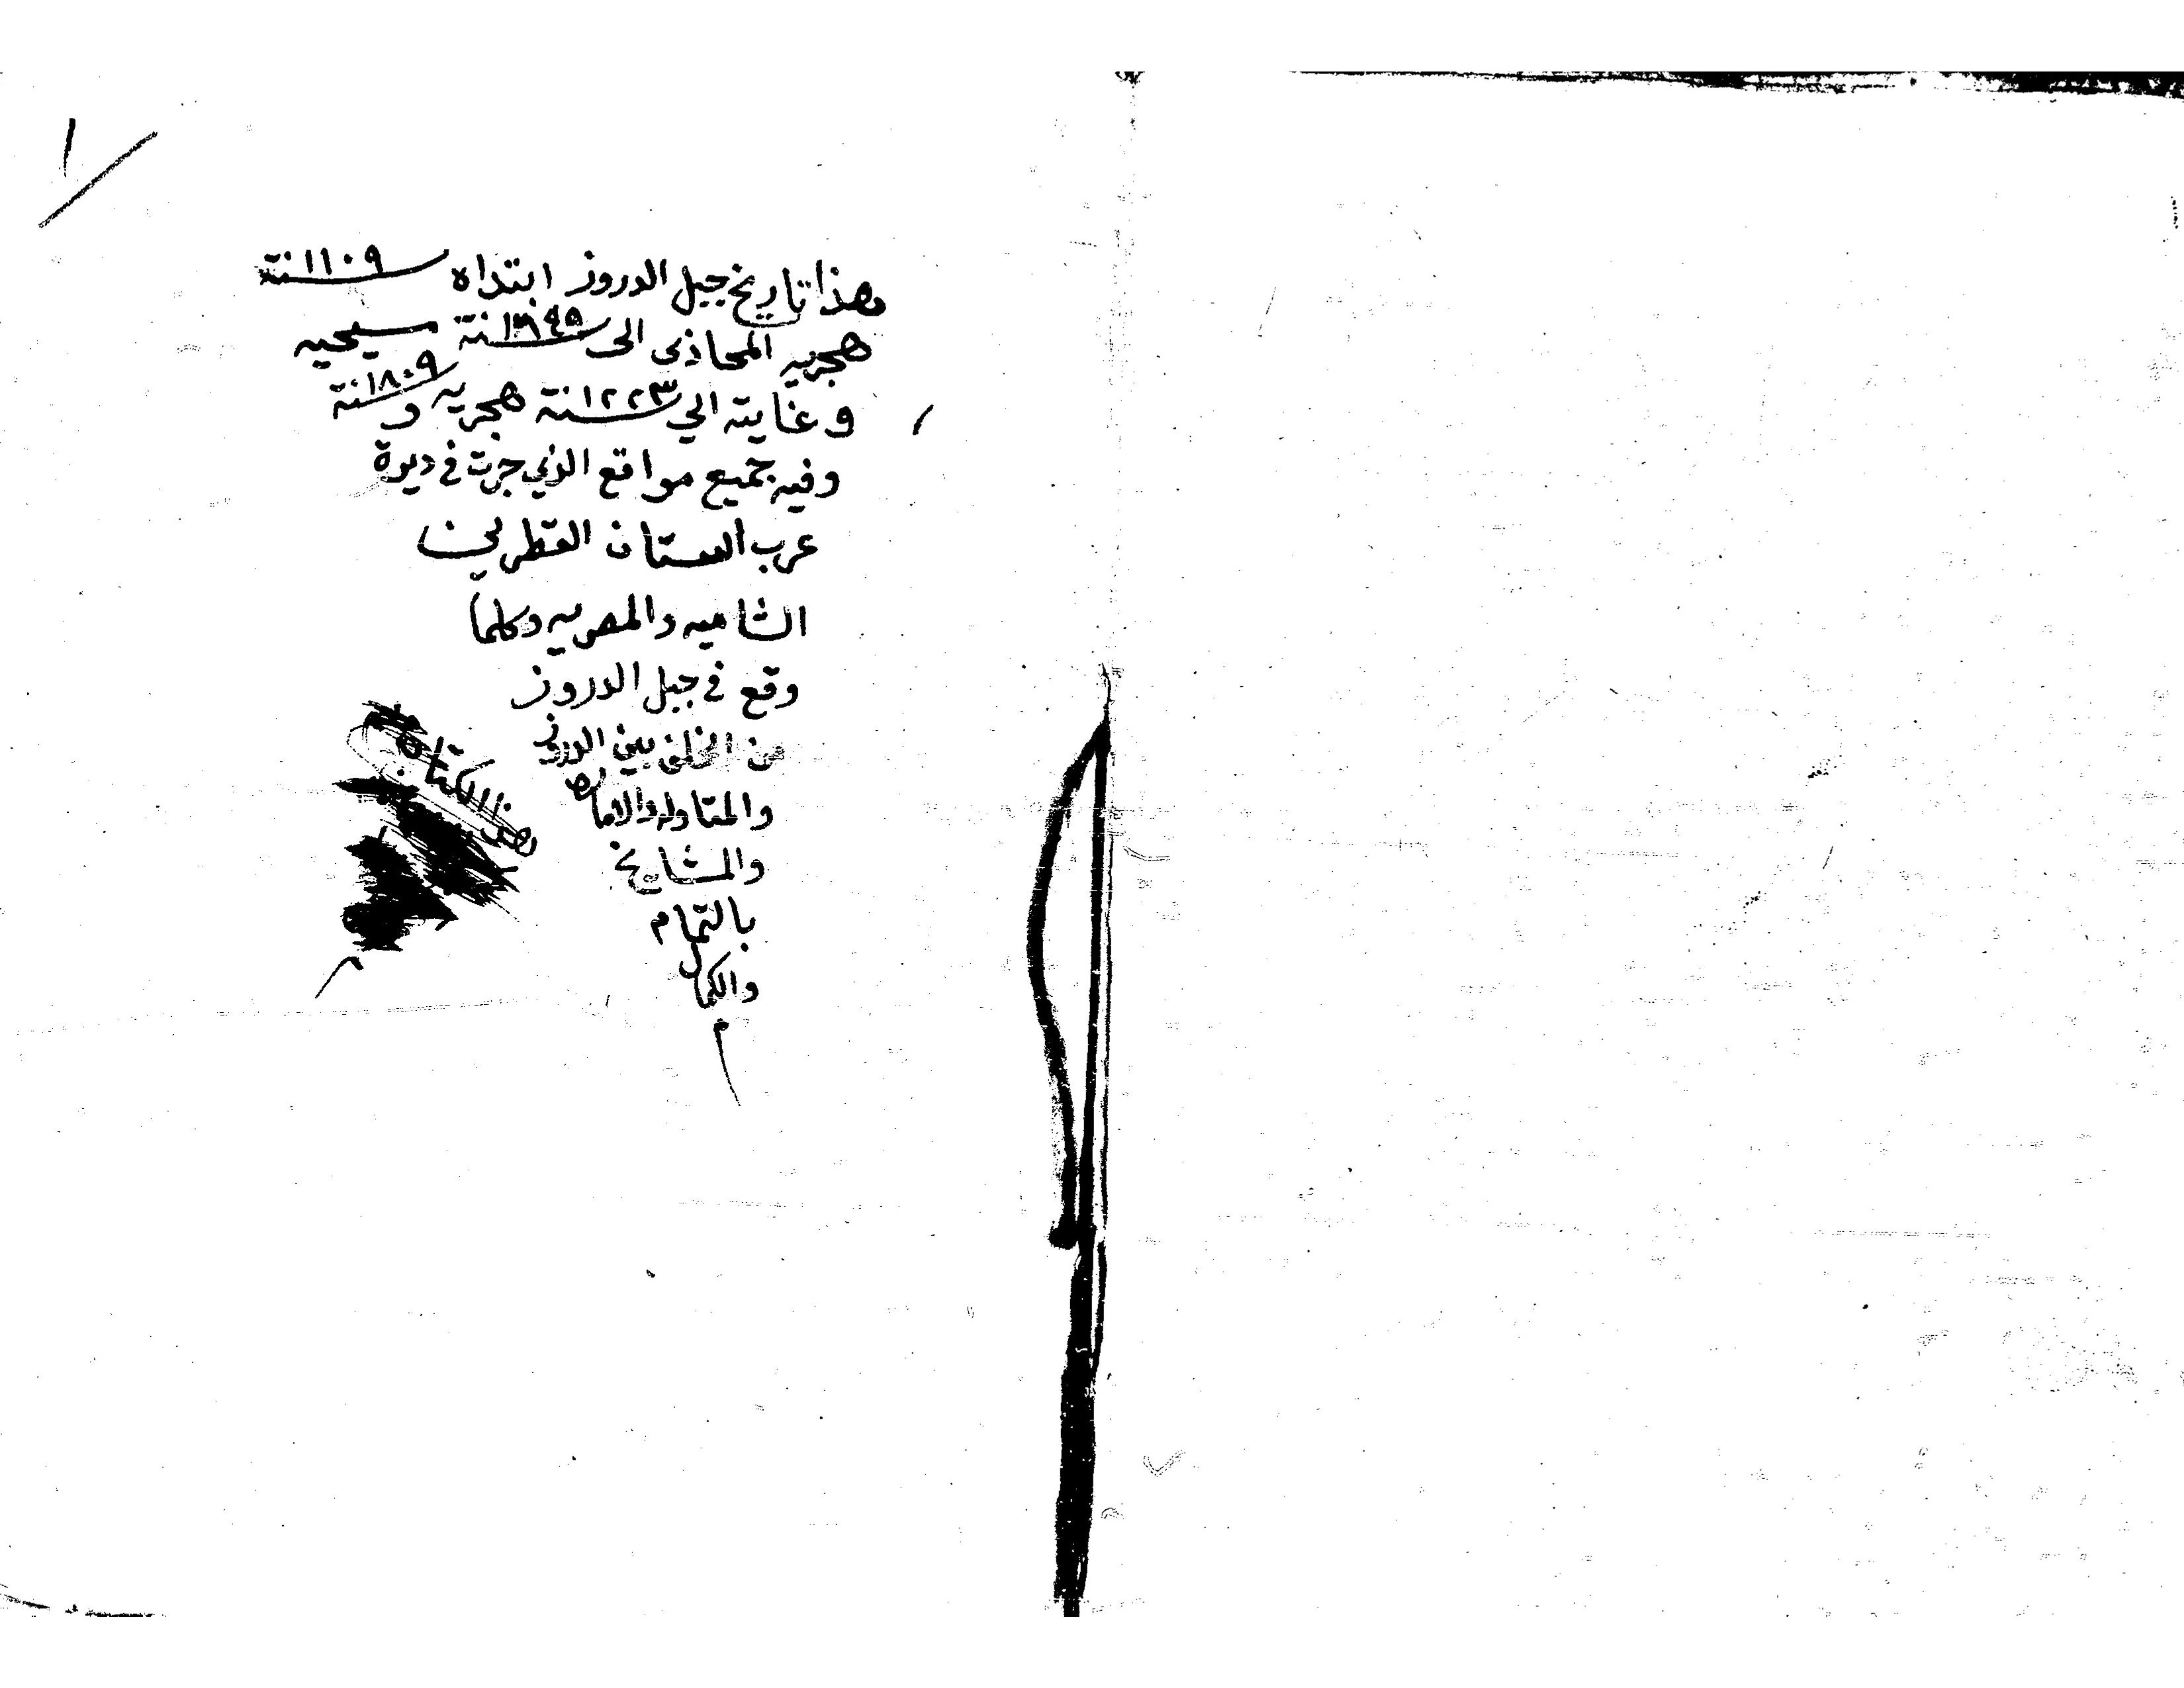 ١
هذا تاريخ جبل الدروز ابتداه سنة ١١٠٩
هجريه المحاذى الى سنة مسيحيه
وغايته الي سنة ١٢٢٣ هجريه و سنة ١٨٠٩
وفيه جميع مواقع الذي جرت في ديرة
عرب القطرين
الشاميه والمصريه وكلما
وقع في جبل الدروز
من الخلف بين الدروز
والمتاوله والامارا
والمشايخ
بالتمام
والكمال
م
هذا الكتاب